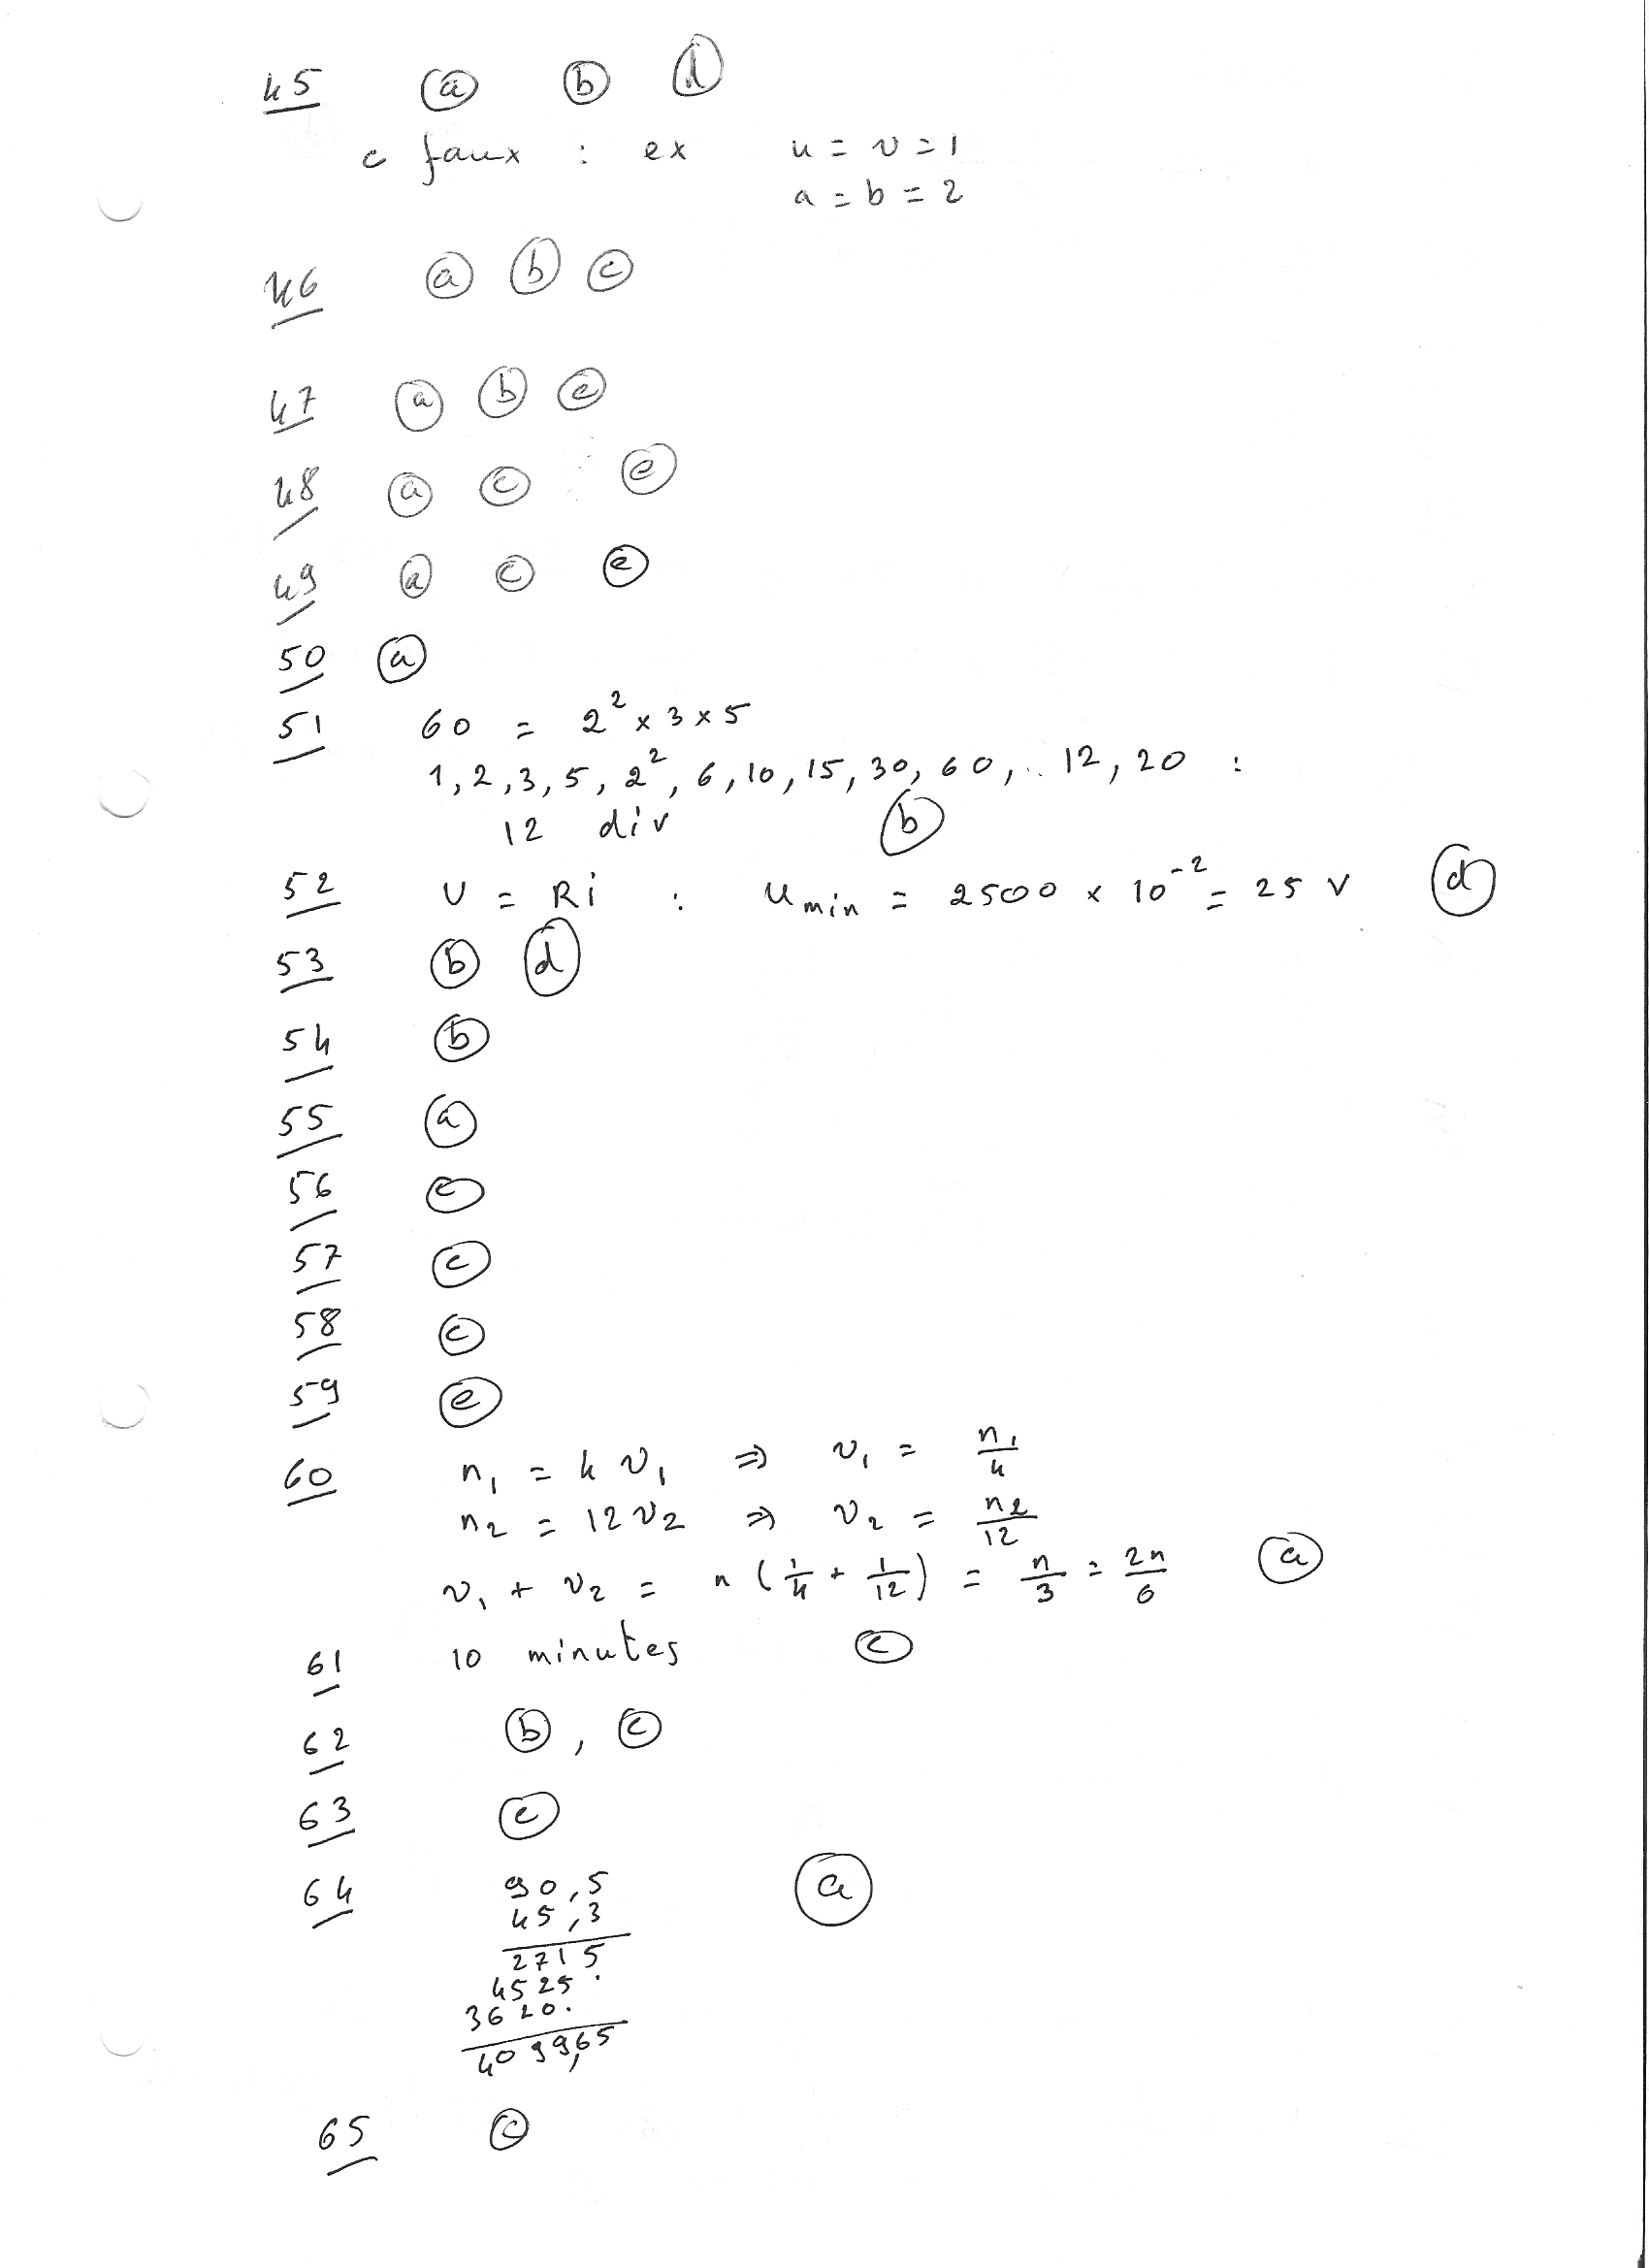 45 a b d
c faux : ex u = v = 1
a = b = 2
46 a b c
47 a b e
48 a c e
49 a c e
50 a
51 60 = 2² × 3 × 5
1, 2, 3, 5, 2², 6, 10, 15, 30, 60, .. 12, 20 :
12 div b
52 U = Ri : u min = 2500 × 10⁻² = 25 V d
53 b d
54 b
55 a
56 c
57 c
58 c
59 e
60 n₁ = 4 v₁ ⇒ v₁ = n₁/4
n₂ = 12 v₂ ⇒ v₂ = n₂/12
v₁ + v₂ = n (1/4 + 1/12) = n/3 = 2n/6 a
61 10 minutes c
62 b , c
63 c
64 90,5 a
45,3
2715
4525 .
3620 .
4099,65
65 c